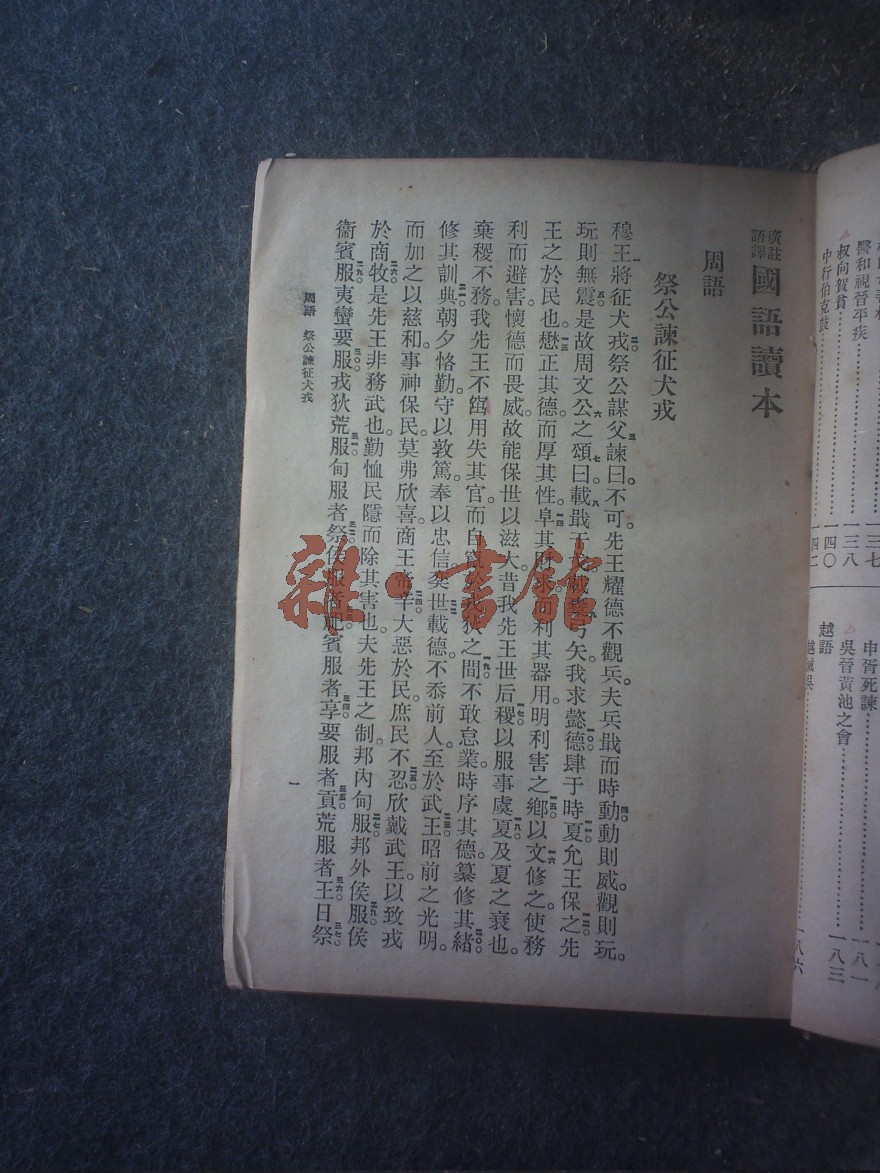 醫和視晉平疾⋯⋯一三八
叔向賀貧⋯⋯一四〇
中行伯克鼓⋯⋯一四二
申胥死諫⋯⋯一八一
吳晉黃池之會⋯⋯一八三
越語
越滅吳⋯⋯一八六
廣註語譯 國語讀本
周語
祭公諫征犬戎
穆王將征犬戎祭公謀父諫曰不可。先王耀德不觀兵。夫兵戢而時動動則威。觀則玩。
玩則無震是故周文公之頌曰載戢干戈載櫜弓矢我求懿德肆于時夏允王保之先
王之於民也。懋正其德而厚其性阜其財求而利其器用明利害之鄉以文修之使務
利而避害懷德而畏威。故能保世以滋大。昔我先王世后稷以服事虞夏及夏之衰也。
棄稷不務。我先王不窋用失其官。而自竄於戎狄之間不敢怠業。時序其德。纂修其緒
修其訓典。朝夕恪勤。守以敦篤。奉以忠信奕世載德不忝前人。至於武王昭前之光明。
而加之以慈和。事神保民莫弗欣喜。商王帝辛大惡於民。庶民不忍欣戴武王。以致戎
於商牧。是先王非務武也。勤恤民隱而除其害也。夫先王之制邦內甸服邦外侯服侯
衞賓服夷蠻要服戎狄荒服甸服者祭侯服者祀賓服者享要服者貢荒服者王日祭
周語 祭公諫征犬戎
一
雜·書館